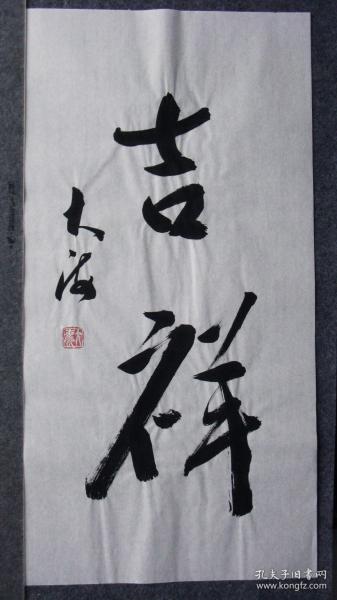 吉祥
大海
孔夫子旧书网
www.kongfz.com